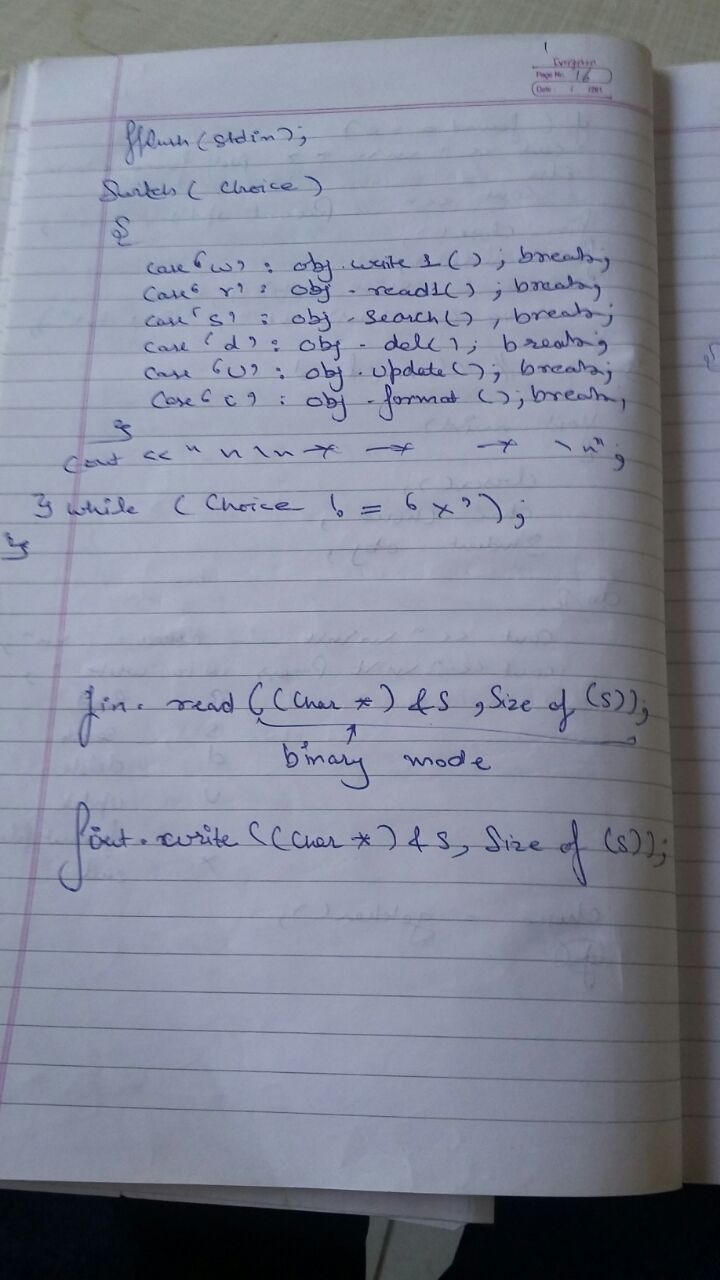 1
Evergreen
Page No. 16
Date: / /201
fflush (stdin);
Switch ( Choice )
{
case 'w' : obj . write 1 ( ) ; break;
Case 'r' : obj . read1( ) ; break;
Case 's' : obj . Search( ) , break;
Case 'd' : obj . del( ) ; break;
Case 'U' : obj . update( ) ; break;
Case 'c' : obj . format ( ) ; break;
}
Cout << " \n \n * * * \n" ;
} while ( Choice != 'x' ) ;
}
fin. read ( (Char *) &S , Size of (S));
↑
binary mode
fout. write ( (Char *) &S, Size of (S));